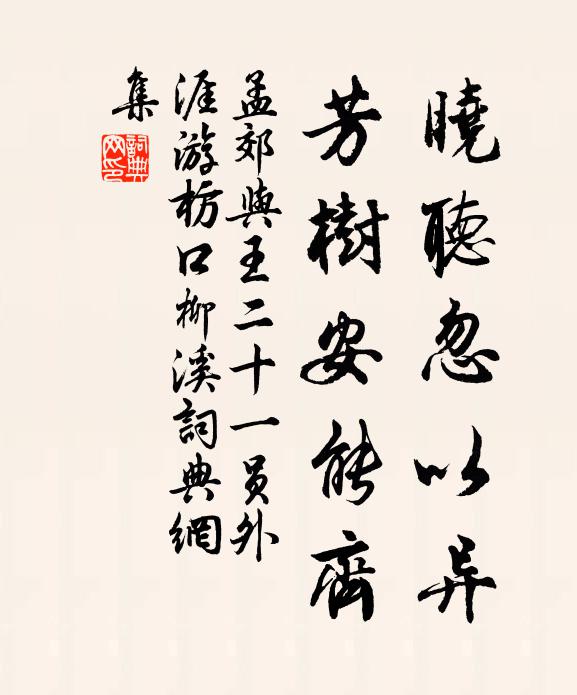 曉聽忽以异
芳樹安能齊
孟郊與王二十一員外
涯游枋口柳溪詞典網
集
詞典網印